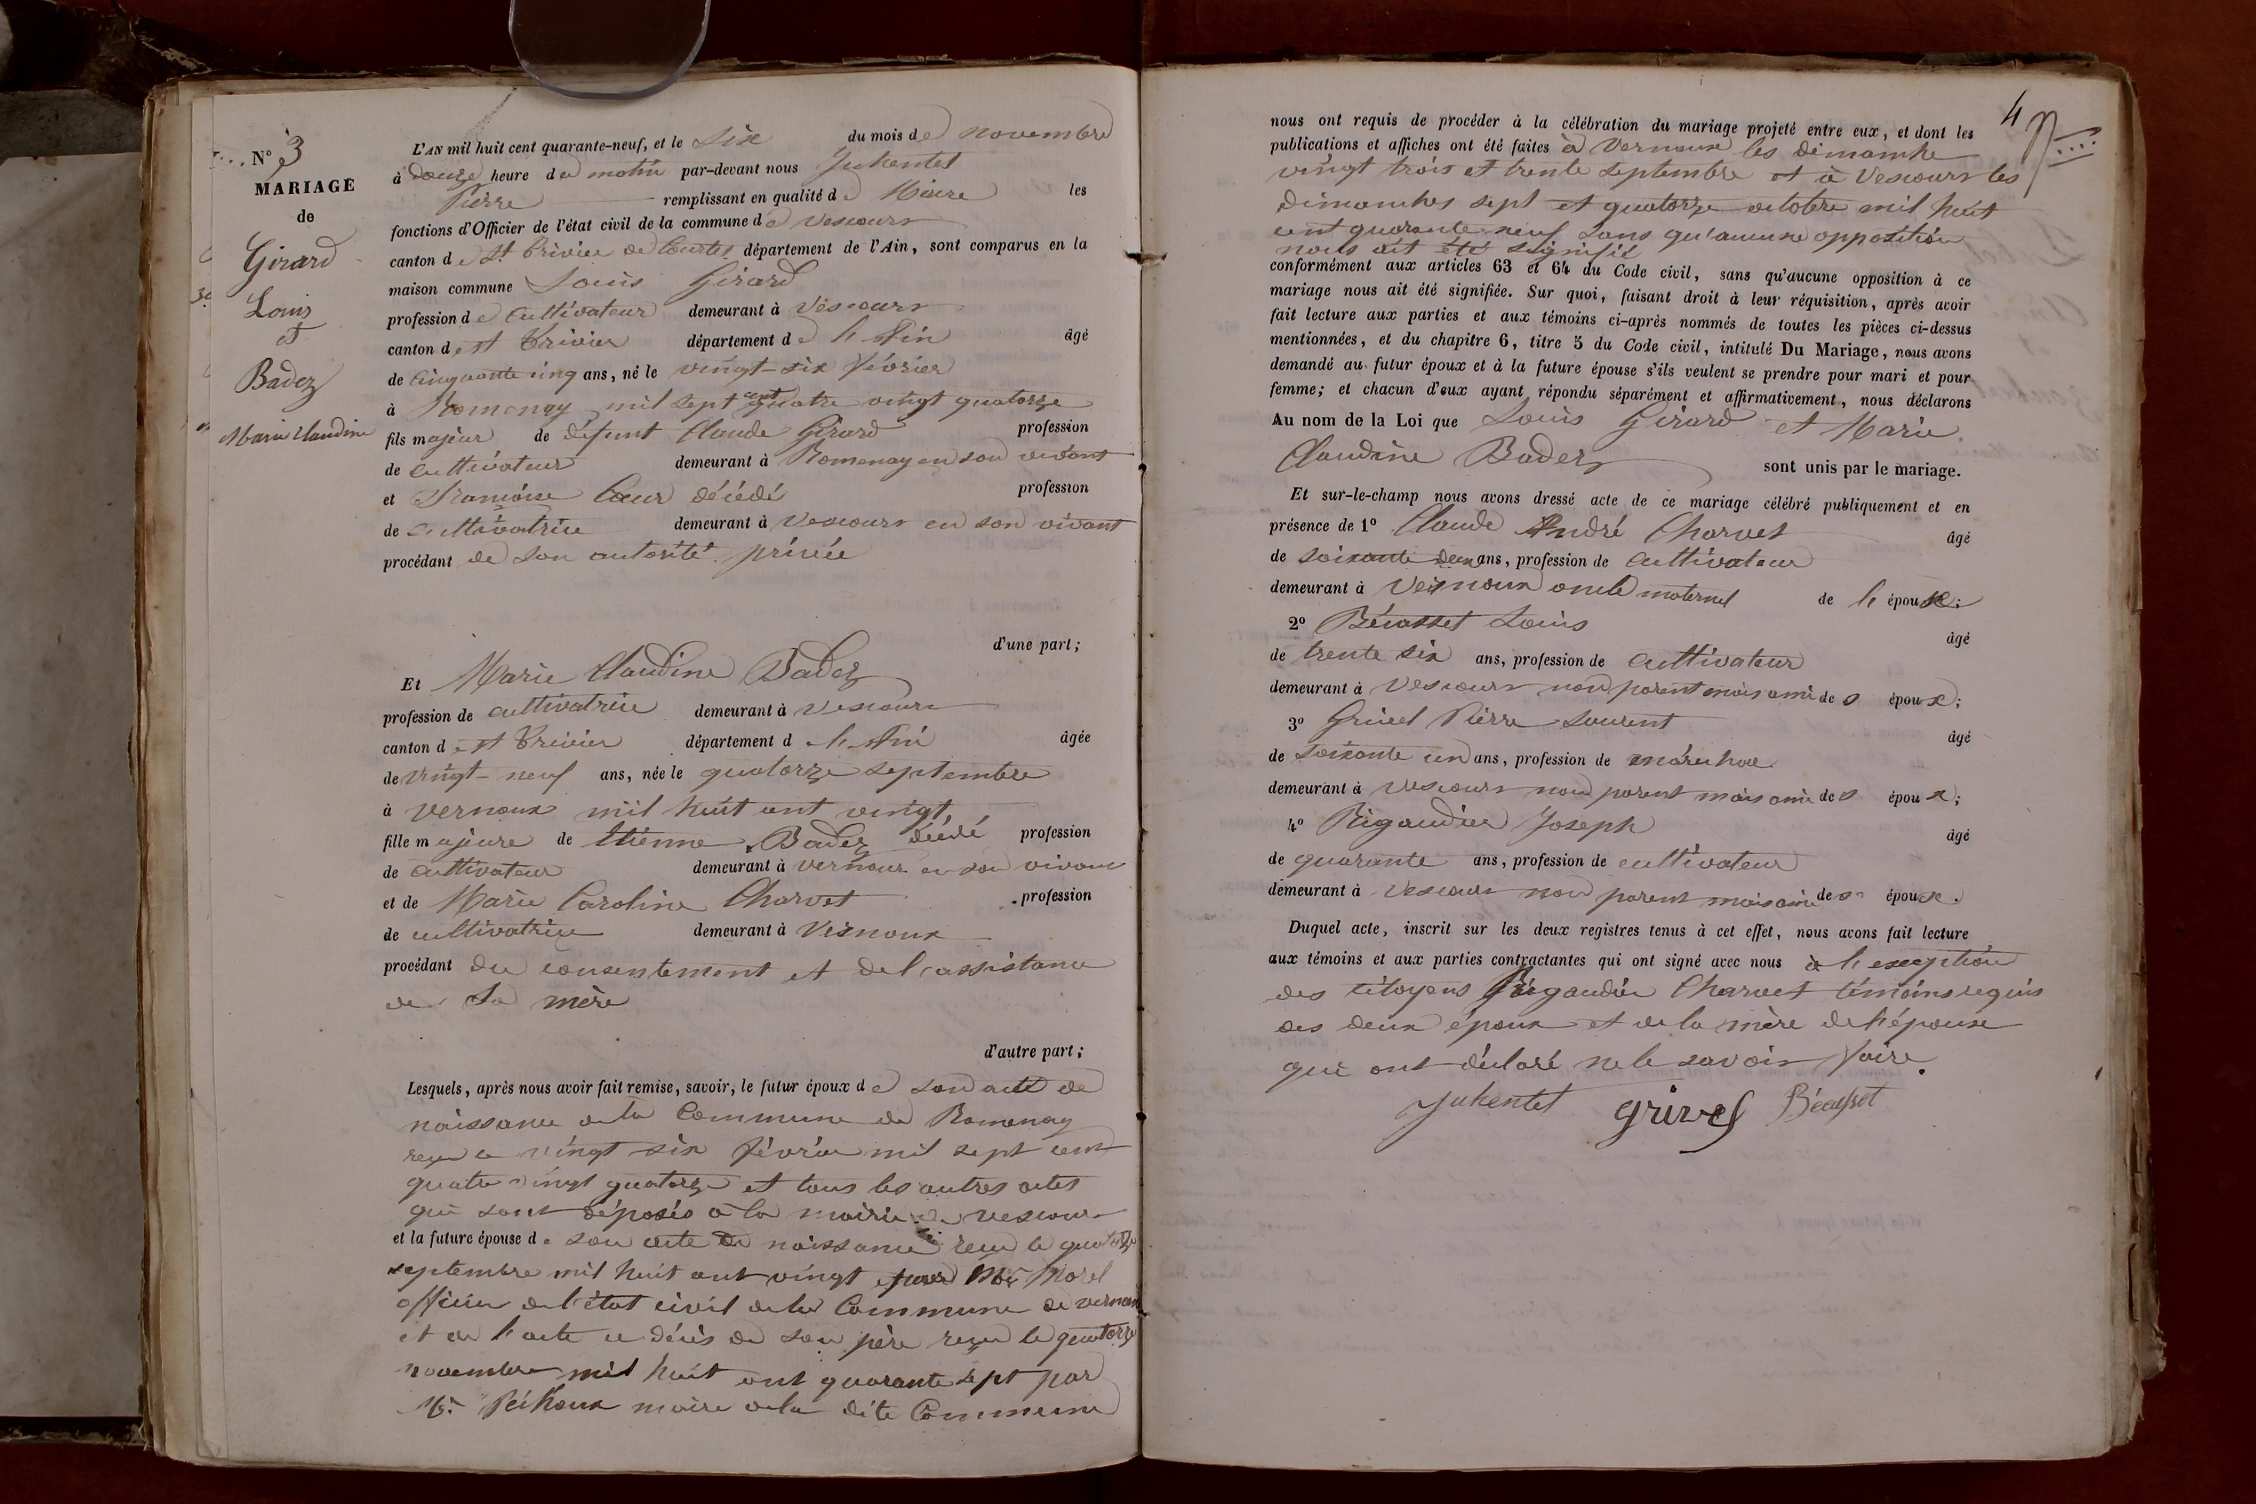 N° 3
MARIAGE
de
Girard
Louis
et
Badez
Marie Claudine
L'AN mil huit cent quarante-neuf, et le six du mois de novembre
à douze heure du matin par-devant nous Juhentet
Pierre remplissant en qualité de Maire les
fonctions d'Officier de l'état civil de la commune de vescours
canton de St Trivier de Courtes, département de l'Ain, sont comparus en la
maison commune Louis Girard
profession de cultivateur demeurant à vescours
canton de st Trivier département de l'Ain âgé
de cinquante cinq ans, né le vingt-six février
à Romenay mil sept cent quatre vingt quatorze
fils majeur de défunt Claude Girard profession
de cultivateur demeurant à Romenay en son vivant
et Francoise Cœur décédé profession
de cultivatrice demeurant à vescours en son vivant
procédant de son autorité privée
d'une part;
Et Marie Claudine Badez
profession de cultivatrice demeurant à vescours
canton de st Trivier département d l'Ain âgée
de vingt-neuf ans, née le quatorze septembre
à vernoux mil huit cent vingt
fille majeure de Etienne Badez décédé profession
de cultivateur demeurant à vernoux en son vivant
et de Marie Caroline Charvet profession
de cultivatrice demeurant à Vernoux
procédant du consentement et de l'assistance
de sa mère
d'autre part;
Lesquels, après nous avoir fait remise, savoir, le futur époux de son acte de
naissance de la Commune de Romenay
reçu le vingt six février mil sept cent
quatre vingt quatorze et tous les autres actes
qui sont déposés à la mairie de vescours
et la future épouse de son acte de naissance reçu le quatorze
septembre mil huit cent vingt par Mr Morel
officier de l'état civil de la Commune de vernoux
et de l'acte de décès de son père reçu le quatorze
novembre mil huit cent quarante sept par
Mr Péchoux maire de la dite Commune
4
nous ont requis de procéder à la célébration du mariage projeté entre eux, et dont les
publications et affiches ont été faites à Vernoux les dimanche
vingt trois et trente septembre et à Vescours les
dimanches sept et quatorze octobre mil huit
cent quarante neuf sans qu'aucune opposition
nous ait été signifié
conformément aux articles 63 et 64 du Code civil, sans qu'aucune opposition à ce
mariage nous ait été signifiée. Sur quoi, faisant droit à leur réquisition, après avoir
fait lecture aux parties et aux témoins ci-après nommés de toutes les pièces ci-dessus
mentionnées, et du chapitre 6, titre 5 du Code civil, intitulé Du Mariage, nous avons
demandé au futur époux et à la future épouse s'ils veulent se prendre pour mari et pour
femme; et chacun d'eux ayant répondu séparément et affirmativement, nous déclarons
Au nom de la Loi que Louis Girard et Marie
Claudine Badez sont unis par le mariage.
Et sur-le-champ nous avons dressé acte de ce mariage célébré publiquement et en
présence de 1° Claude André Charvet âgé
de soixante deux ans, profession de cultivateur
demeurant à Vernoux oncle maternel de l'épouse;
2° Bécasset Louis âgé
de trente six ans, profession de cultivateur
demeurant à vescours non parent mais ami des époux;
3° Grivel Pierre Laurent âgé
de soixante un ans, profession de maréchal
demeurant à vescours non parent mais ami des époux;
4° Rigaudier Joseph âgé
de quarante ans, profession de cultivateur
demeurant à vescours non parent mais ami des époux.
Duquel acte, inscrit sur les deux registres tenus à cet effet, nous avons fait lecture
aux témoins et aux parties contractantes qui ont signé avec nous à l'exception
des citoyens Rigaudier Charvet témoins requis
des deux époux et de la mère de l'épouse
qui ont déclaré ne le savoir faire.
Juhentet Grivel Bécasset